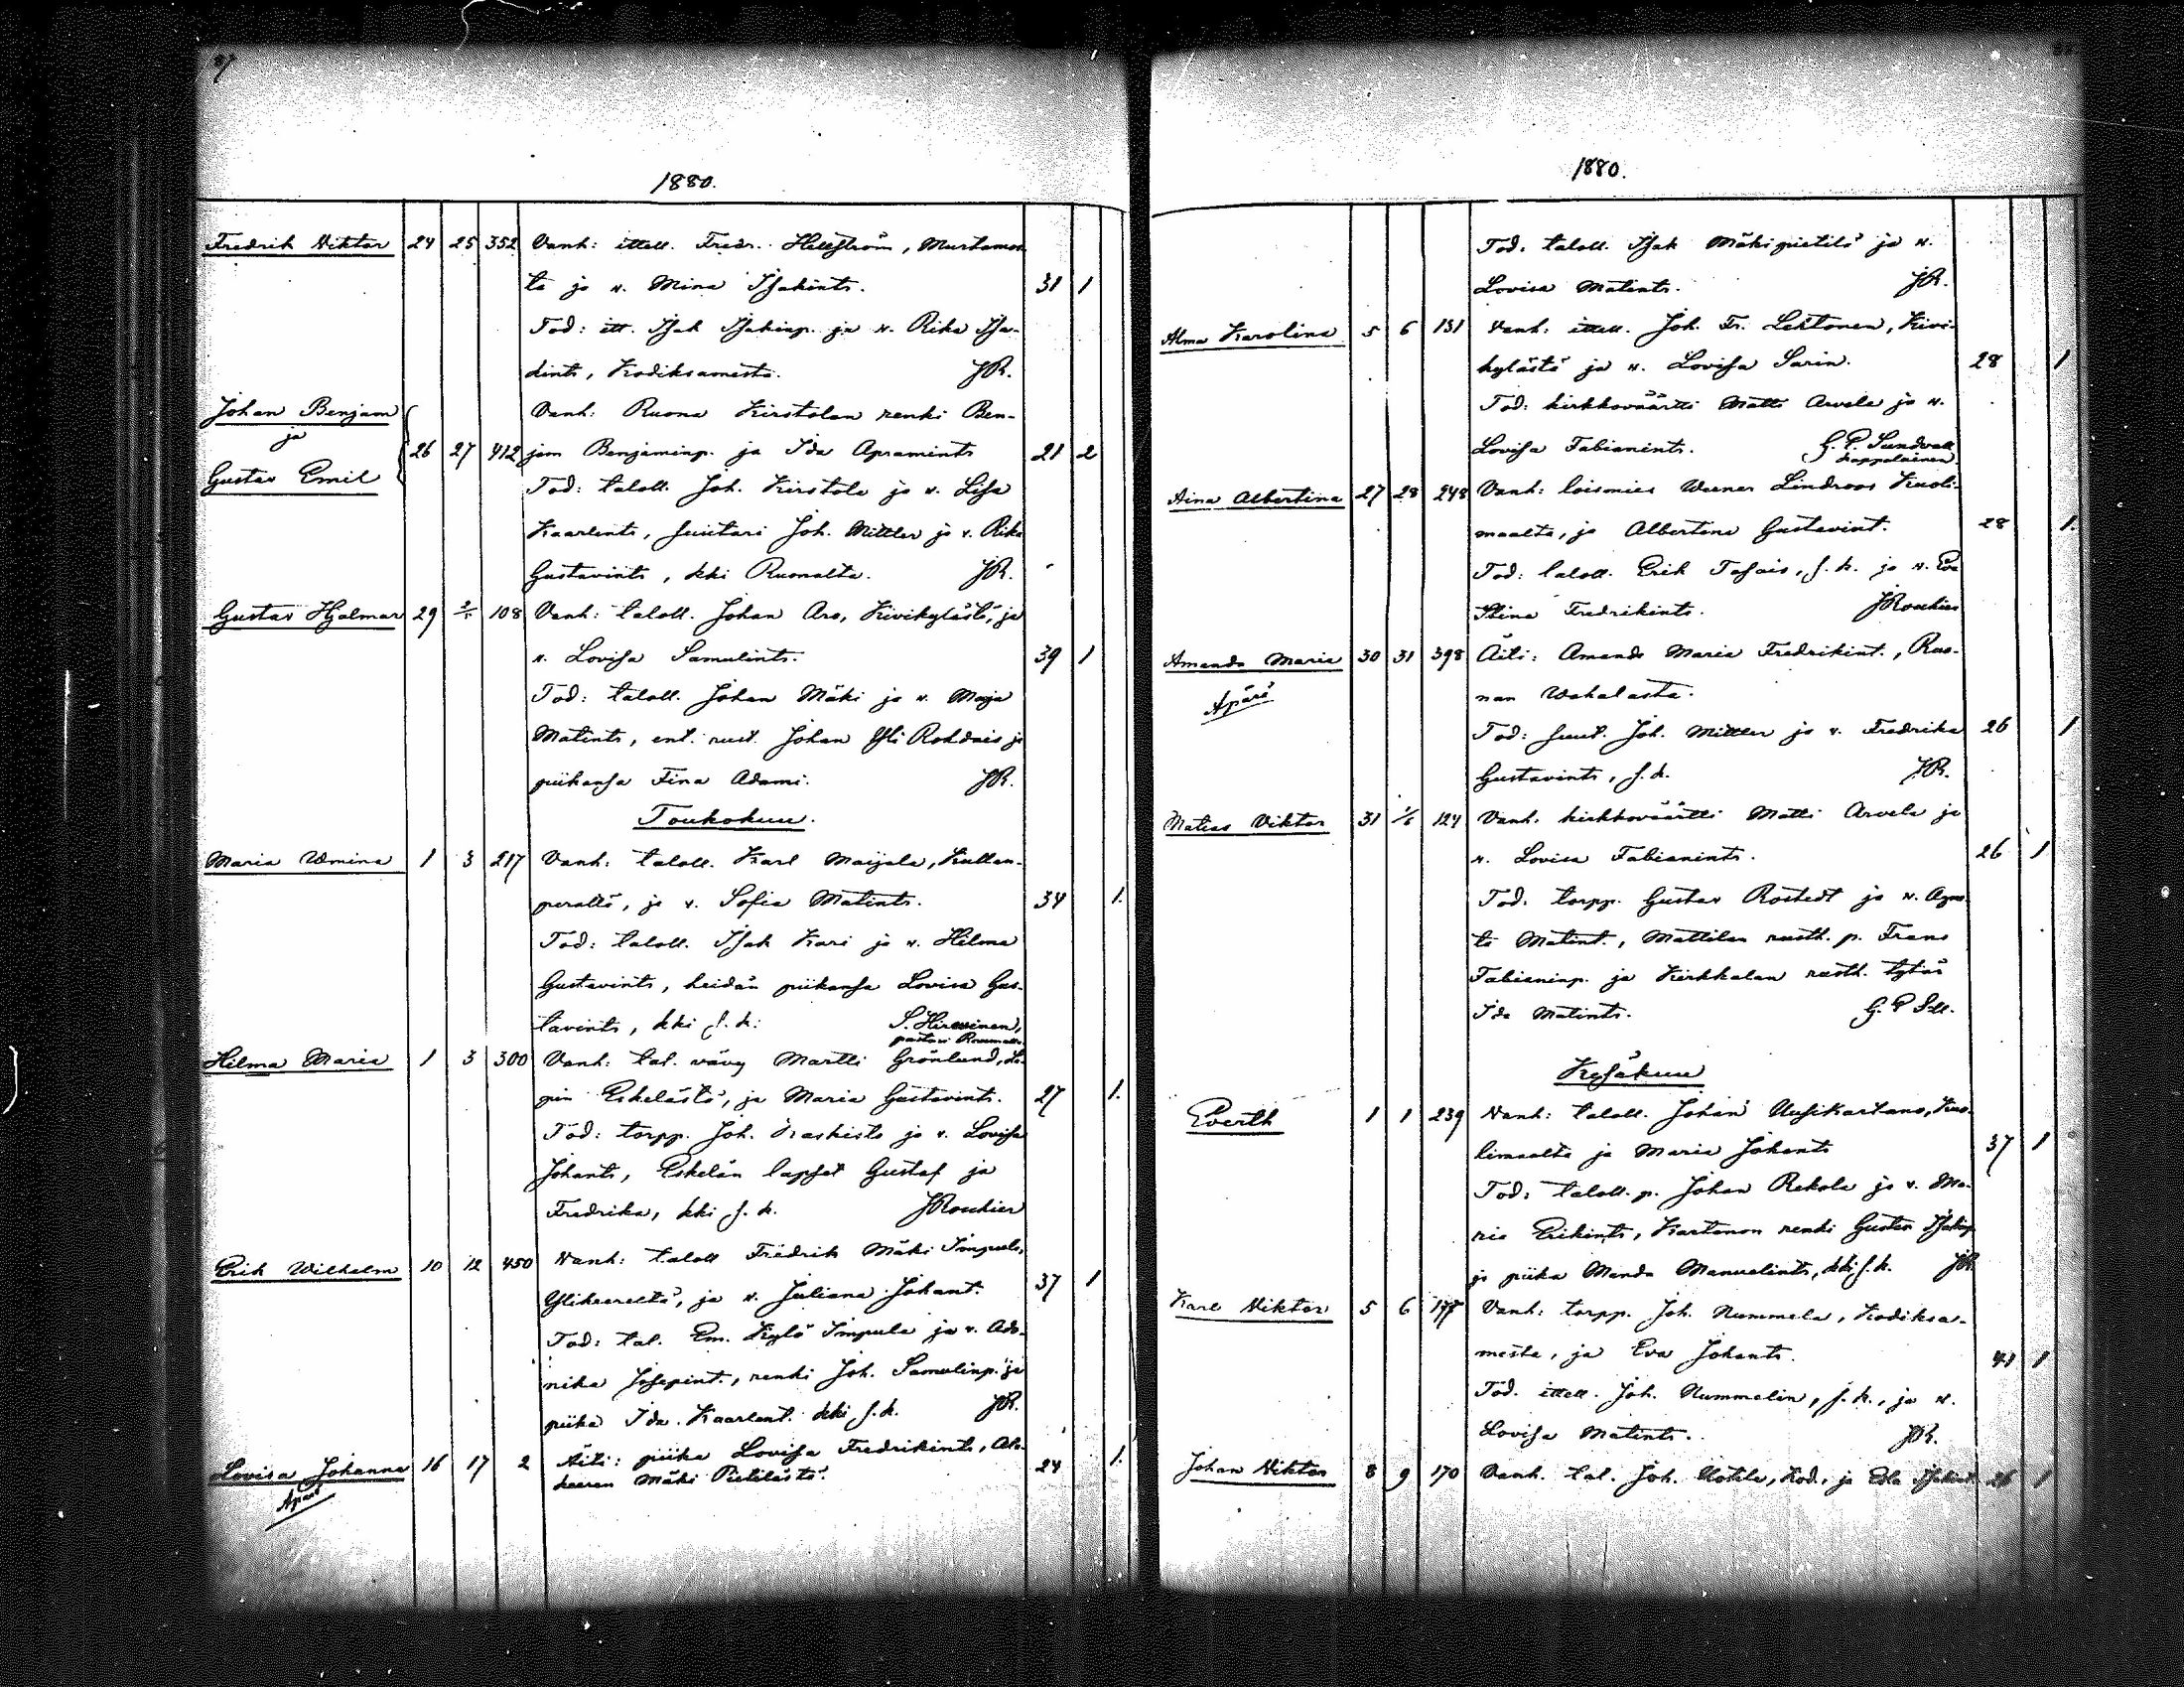 87
1880.
Fredrik Viktor 24 25 352 Vanh: ittell. Fredr. Hellström, Murtamos
ta ja v. Mina Isakints. 31 1
Tod: itt. Isak Isakinp. ja v. Rika Isa-
kints, Kodiksamesta. JR.
Johan Benjam Vanh: Ruona Kirstolan renki Ben-
ja
26 27 412 jam Benjaminp. ja Ida Apramints 21 2
Gustav Emil Tod: taloll. Joh. Kirstola ja v. Lisa
Kaarlints, suutari Joh. Mittler ja v. Rika
Gustavints, kki Ruonalta. JR.
Gustav Hjalmar 29 108 Vanh: taloll. Johan Aro, Kivikylästä, ja
v. Lovisa Samulints. 39 1
Tod: taloll. Johan Mäki ja v. Maja
Matints, ent. rust. Johan Yli Rohdais ja
piikansa Fina Adami. JR.
Toukokuu.
Maria Wmina 1 3 217 Vanh: taloll. Karl Maijala, Kullan-
perältä, ja v. Sofia Matints. 34 1.
Tod: taloll. Isak Kari ja v. Hilma
Gustavints, heidän piikansa Lovisa Gus-
tavints, kki s. k: S. Hirvinen,
pastori Raumalla
Hilma Maria 1 3 300 Vanh: tal. vävy Martti Grönlund, La-
pin Eskelästä, ja Maria Gustavints. 27 1.
Tod: torpp. Joh. Kaskisto ja v. Lovisa
Johants, Eskelän lapset Gustaf ja
Fredrika, kki s. k. JRoukier
Erik Wilhelm 10 12 450 Vanh: taloll Fredrik Mäki Impula,
Ylikeereltä, ja v. Juliana Johant. 37 1
Tod: tal. Em. Kylä Impula ja v. Ado-
nika Josepint., renki Joh. Samulinp. ja
piika Ida Kaarlent. kki s. k. JR.
Lovisa Johanna 16 17 2 Äiti: piika Lovisa Fredrikints, Ala-
keeren Mäki Pietilästä. 24 1.
Apärä
1880.
Tod: taloll. Isak Mäkipietilä ja v.
Lovisa Matints. JR.
Alma Karolina 5 6 131 Vanh: ittell. Joh. Fr. Lehtonen, Kivi-
kylästä ja v. Lovisa Sarin. 28 1
Tod: kirkkoväärtti Matti Arvela ja v.
Lovisa Fabianints. G. P. Sundvall
kappalainen
Aina Albertina 27 28 248 Vanh: loismies Werner Lindroos Kuoli-
maalta, ja Albertina Gustavint. 28 1.
Tod: taloll. Erik Tasais, s. k. ja v. Eva
Stina Fredrikints. JRoukier
Amanda Maria 30 31 398 Äiti: Amanda Maria Fredrikint., Ruo-
Apärä nan Wahalasta.
Tod: suut. Joh. Mittler ja v. Fredrika 26 1
Gustavints, s. k. JR.
Matias Viktor 31 1/6 124 Vanh. kirkkoväärtti Matti Arvela ja
v. Lovisa Fabianints. 26 1
Tod. torpp. Gustav Rostedt ja v. Agus-
ta Matint., Mattilan rusth. p. Frans
Fabianinp. ja Kirkkalan rusth. tytär
Ida Matints. G. P Sll.
Kesäkuu
Everth 1 1 239 Vanh: taloll. Johan Uusikartano, Kuo-
limaalta ja Maria Johants 37 1
Tod: taloll. p. Johan Rekola ja v. Ma-
ria Erikints, Kartanon renki Gustav Isakinp
ja piika Manda Manuelints, kki s. k. JR
Karl Viktor 5 6 177 Vanh: torpp. Joh. Nummela, Kodiksa-
mesta, ja Eva Johants. 41 1
Tod. ittell. Joh. Nummelin, s. k., ja v.
Lovisa Matints. JR.
Johan Viktor 8 9 170 Vanh. tal. Joh. Uotila, Kod., ja Eda Isakint 26 1